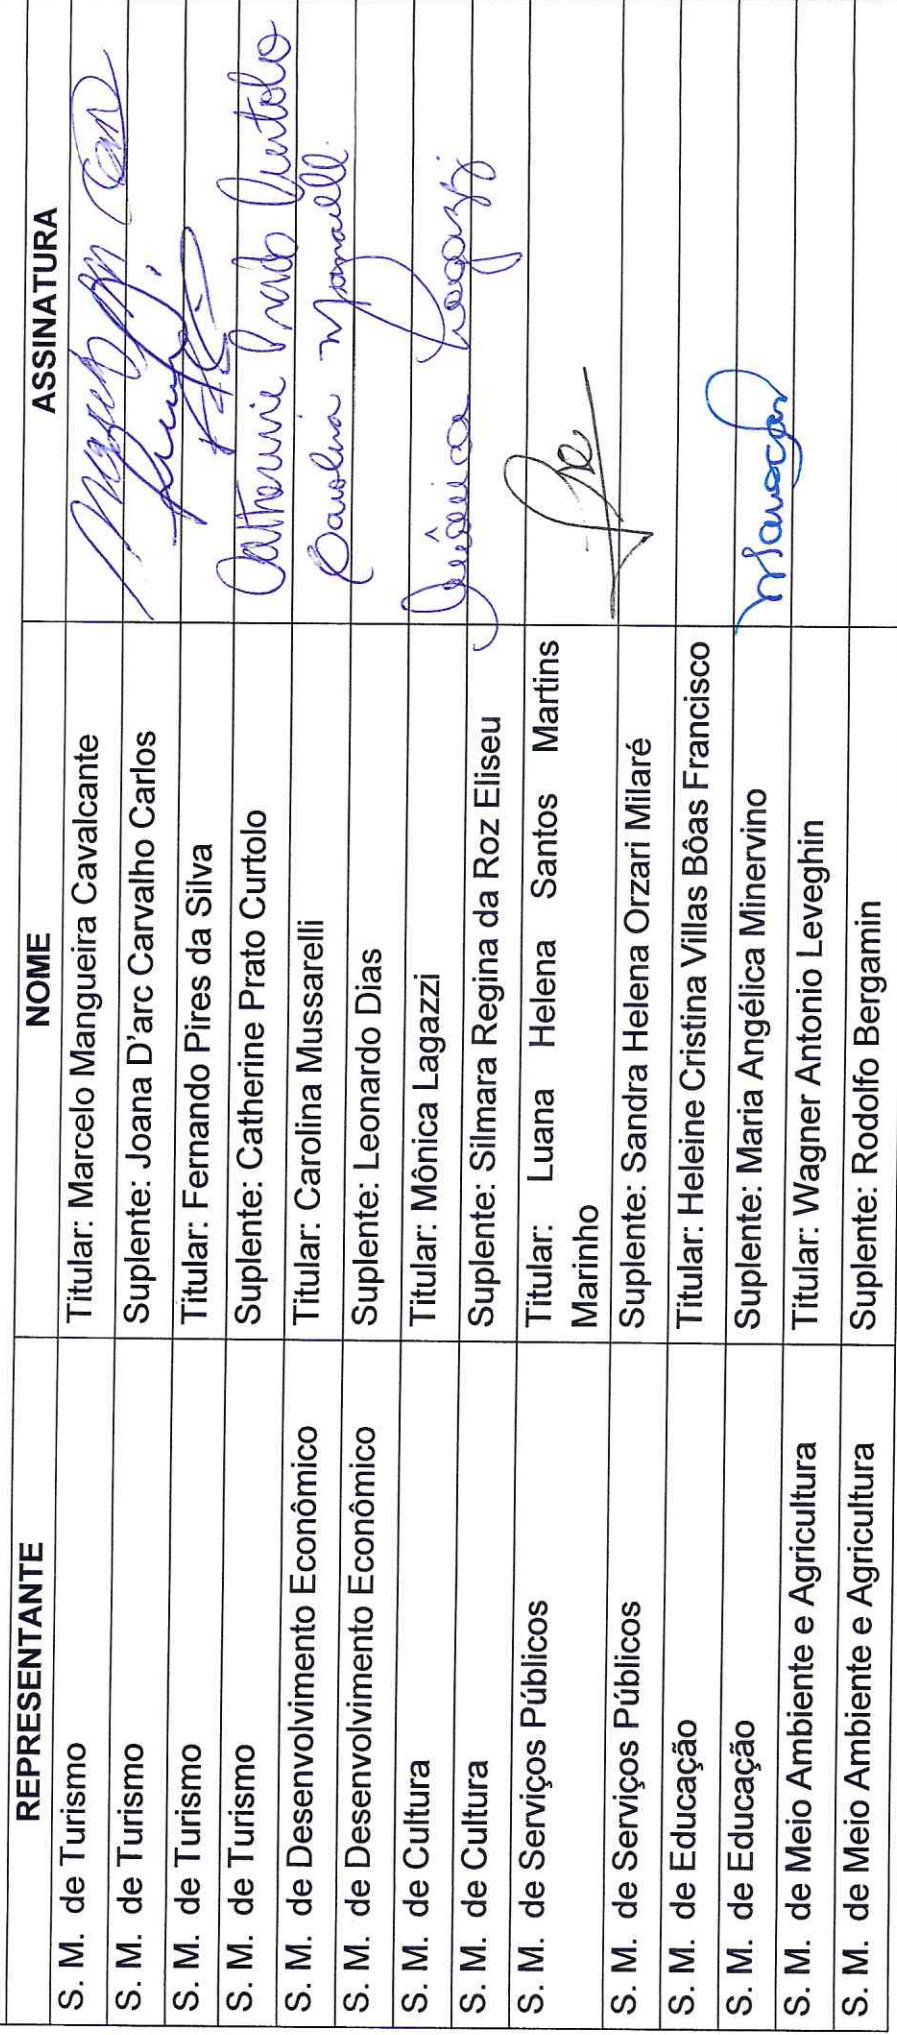 REPRESENTANTE NOME ASSINATURA
S. M. de Turismo Titular: Marcelo Mangueira Cavalcante
S. M. de Turismo Suplente: Joana D'arc Carvalho Carlos
S. M. de Turismo Titular: Fernando Pires da Silva
S. M. de Turismo Suplente: Catherine Prato Curtolo Catherine Prato Curtolo
S. M. de Desenvolvimento Econômico Titular: Carolina Mussarelli Carolina Mussarelli
S. M. de Desenvolvimento Econômico Suplente: Leonardo Dias
S. M. de Cultura Titular: Mônica Lagazzi Mônica Lagazzi
S. M. de Cultura Suplente: Silmara Regina da Roz Eliseu
S. M. de Serviços Públicos Titular: Luana Helena Santos Martins
Marinho
S. M. de Serviços Públicos Suplente: Sandra Helena Orzari Milaré
S. M. de Educação Titular: Heleine Cristina Villas Bôas Francisco
S. M. de Educação Suplente: Maria Angélica Minervino
S. M. de Meio Ambiente e Agricultura Titular: Wagner Antonio Leveghin
S. M. de Meio Ambiente e Agricultura Suplente: Rodolfo Bergamin